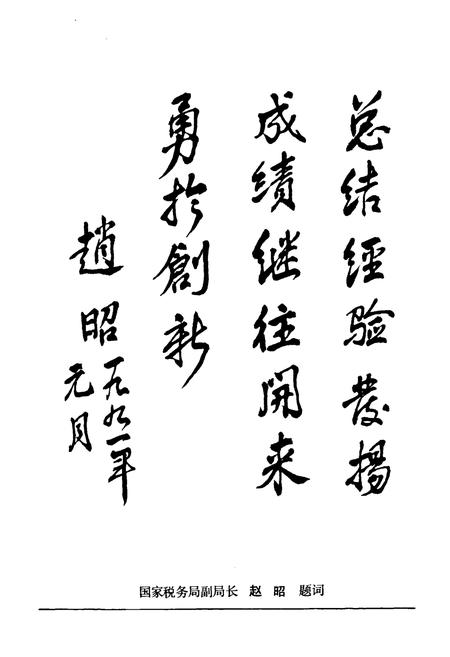 总结经验发扬
成绩继往開来
勇於創新
趙昭
一九九一年
元月
国家税务局副局长 赵 昭 题词